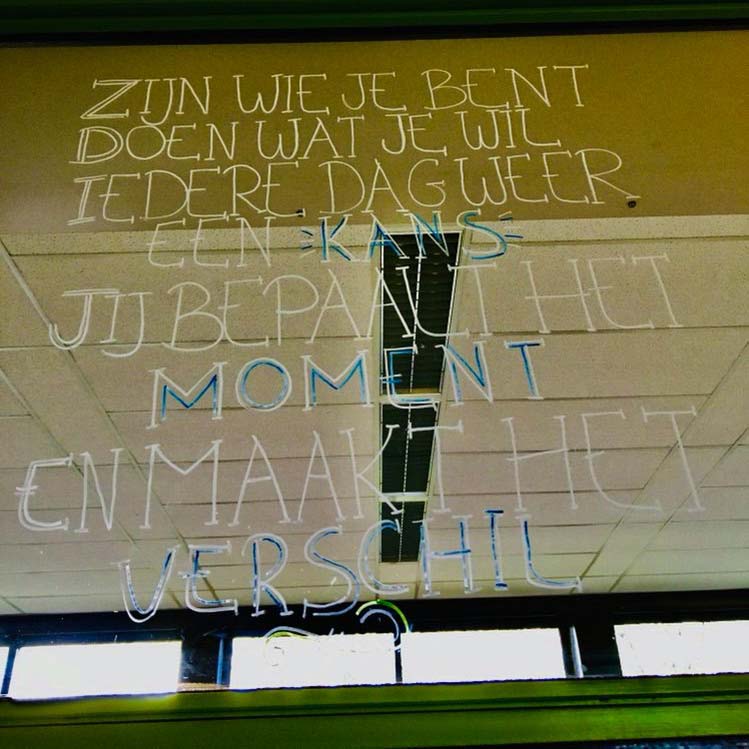 ZIJN WIE JE BENT
DOEN WAT JE WIL
IEDERE DAG WEER
EEN KANS
JIJ BEPAALT HET
MOMENT
EN MAAKT HET
VERSCHIL